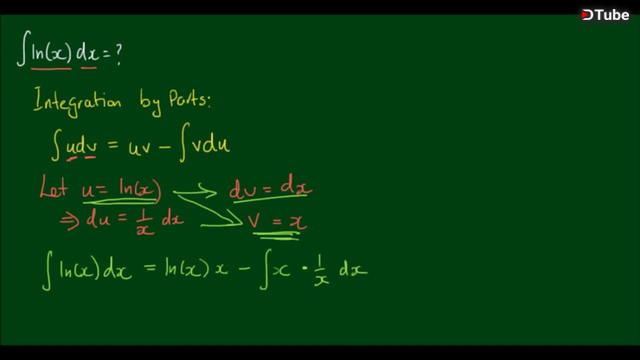 DTube
∫ ln(x) dx = ?
Integration by Parts:
∫ u dv = uv - ∫ v du
Let u = ln(x) dv = dx
⇒ du = 1/x dx v = x
∫ ln(x) dx = ln(x) x - ∫ x · 1/x dx